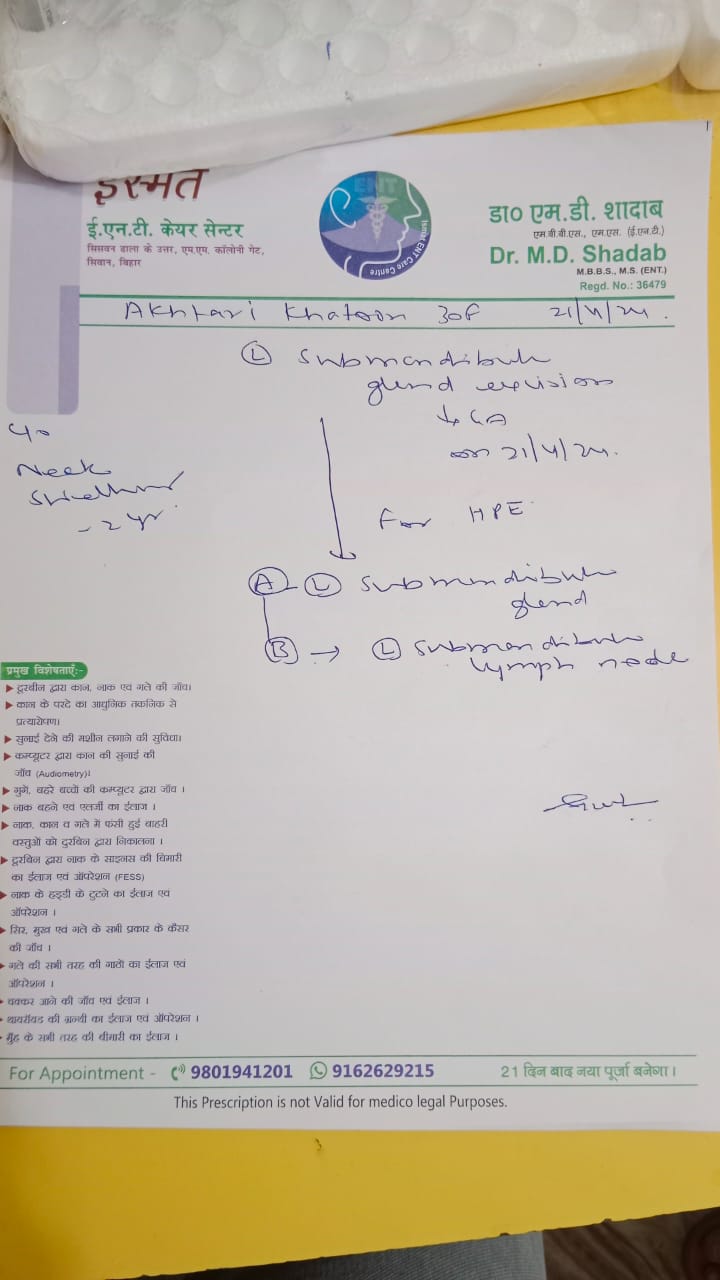 इस्मत
ई.एन.टी. केयर सेन्टर
सिसवन ढाला के उत्तर, एम.एम. कॉलोनी गेट,
सिवान, बिहार
ENT
Ismat ENT Care Centre
डा० एम.डी. शादाब
एम.बी.बी.एस., एम.एस. (ई.एन.टी.)
Dr. M.D. Shadab
M.B.B.S., M.S. (ENT.)
Regd. No.: 36479
Akhtari Khatoon 30F 21/4/24.
Ⓛ Submandibular
gland excision
GA
on 21/4/24.
Neck
Swelling
- 2 yr.
For HPE
Ⓐ - Ⓛ Submandibular
gland
Ⓑ → Ⓛ Submandibular
lymph node
प्रमुख विशेषताएँ:-
दूरबीन द्वारा कान, नाक एवं गले की जाँच।
कान के परदे का आधुनिक तकनिक से
प्रत्यारोपण।
सुनाई देने की मशीन लगाने की सुविधा।
कम्प्यूटर द्वारा कान की सुनाई की
जाँच (Audiometry)।
गुगे, बहरे बच्चों की कम्प्यूटर द्वारा जाँच ।
नाक बहने एवं एलर्जी का ईलाज ।
नाक, कान व गले में फंसी हुई बाहरी
वस्तुओं को दुरबिन द्वारा निकालना ।
दूरबिन द्वारा नाक के साइनस की बिमारी
का ईलाज एवं ऑपरेशन (FESS)
नाक के हड्डी के टुटने का ईलाज एवं
ऑपरेशन ।
सिर, मुख एवं गले के सभी प्रकार के कैंसर
की जाँच ।
गले की सभी तरह की गाठों का ईलाज एवं
ऑपरेशन ।
चक्कर आने की जाँच एवं ईलाज ।
थायरॉयड की ग्रन्थी का ईलाज एवं ऑपरेशन ।
मुँह के सभी तरह की बीमारी का ईलाज ।
For Appointment - 9801941201 9162629215 21 दिन बाद नया पूर्जा बनेगा ।
This Prescription is not Valid for medico legal Purposes.